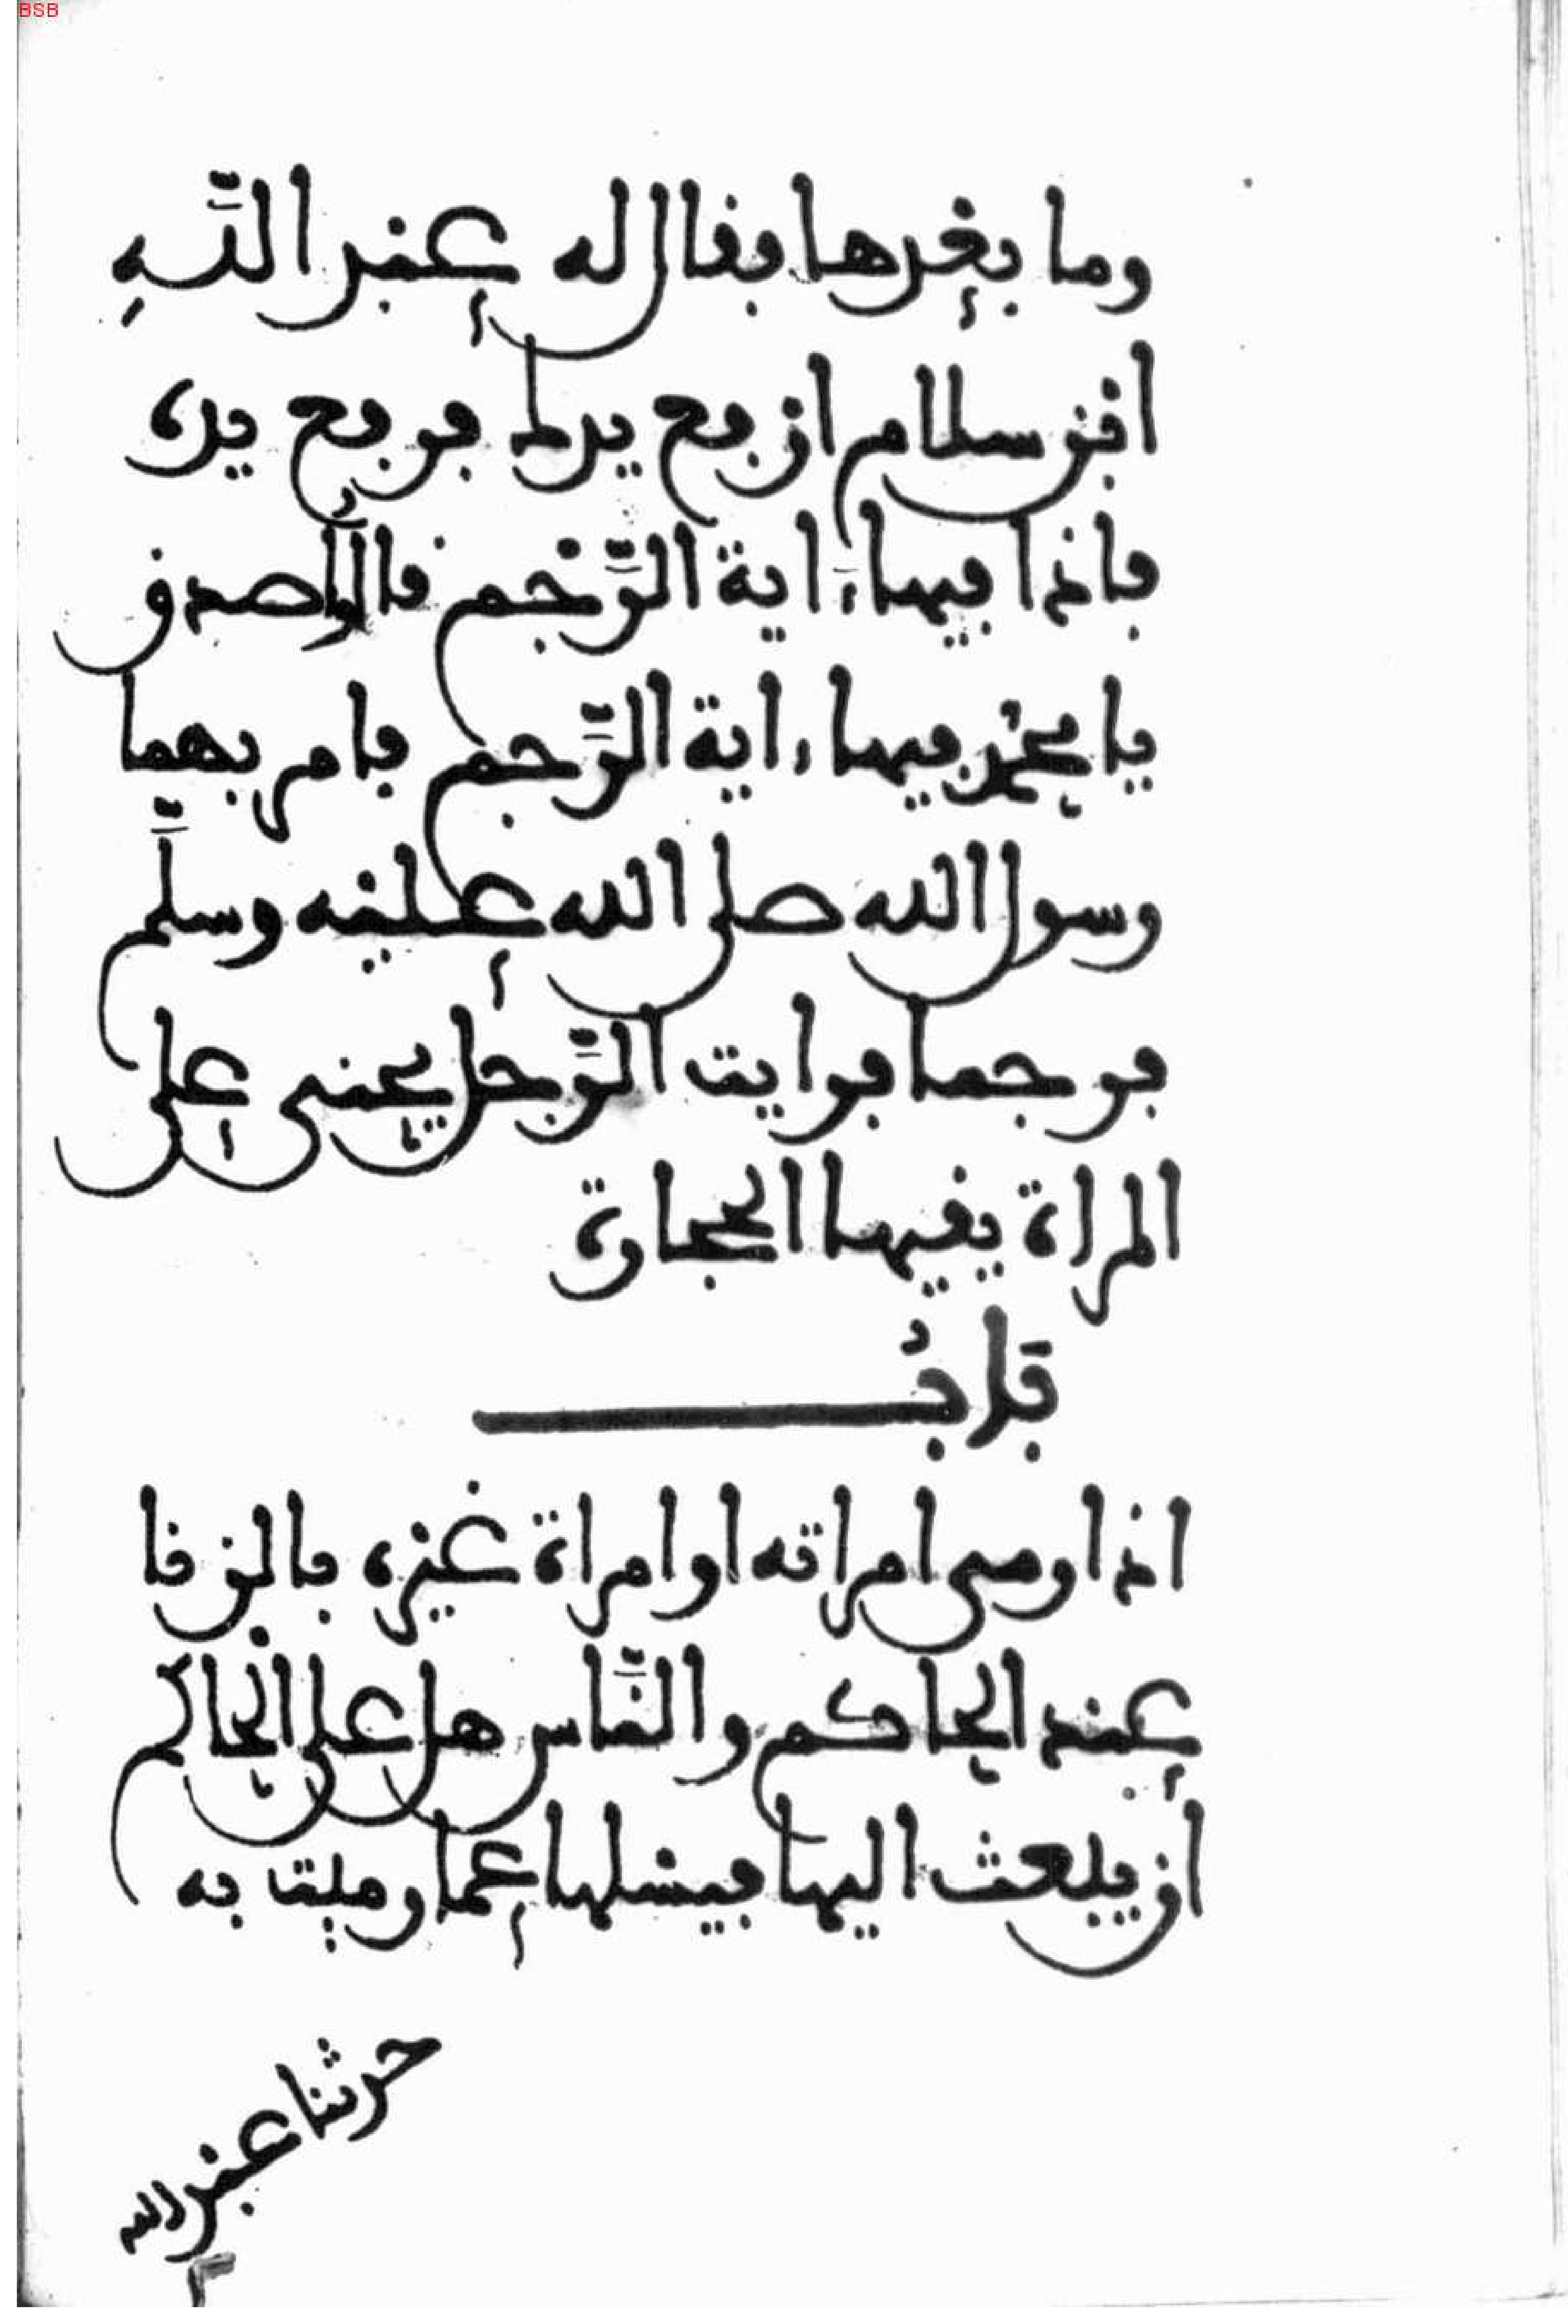 BSB
وما بعدها فقال له عبد اللَّهِ
ابن سلام ارفع يدك فرفع يده
فاذا فيها ءاية الرَّجْم قالوا صدق
يا محمد فيها ءاية الرَّجم فامر بهما
رسول الله صلى الله عليه وسلَّم
فرجما فرايت الرَّجل يحنى على
المراة يقيها الحجارة
بَابُ
اذا رمى امراته او امراة غيره بالزنا
عند الحاكم والنَّاس هل على الحاكم
ان يبعث اليها فيسئلها عما رميت به
حدثنا عبد الله